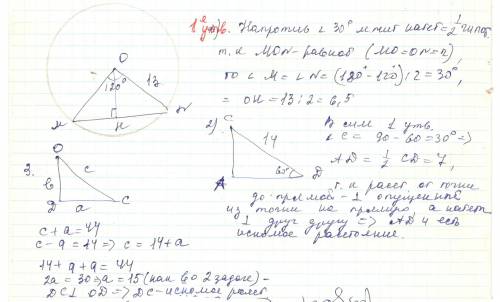 1е утв. Напротив ∠ 30° лежит катет = 1/2 гипот.
т.к. MON - равноб (MO = ON = r),
то ∠ M = ∠ N = (180° - 120°) : 2 = 30°,
= OH = 13 : 2 = 6,5
O
120°
13
M
H
N
2)
C
14
60°
A
D
В силу 1 утв.
∠ C = 90 - 60 = 30° =>
AD = 1/2 CD = 7,
т.к. расст. от точки
до прямой - ⊥ опущенный
из точки на прямую, а катет
⊥ друг другу => AD и есть
искомое расстояние.
3.
O
в
c
D
a
C
c + a = 44
c - a = 14 => c = 14 + a
14 + a + a = 44
2a = 30 => a = 15 (как во 2 задаче) -
DC ⊥ OD => DC - искомое расст.